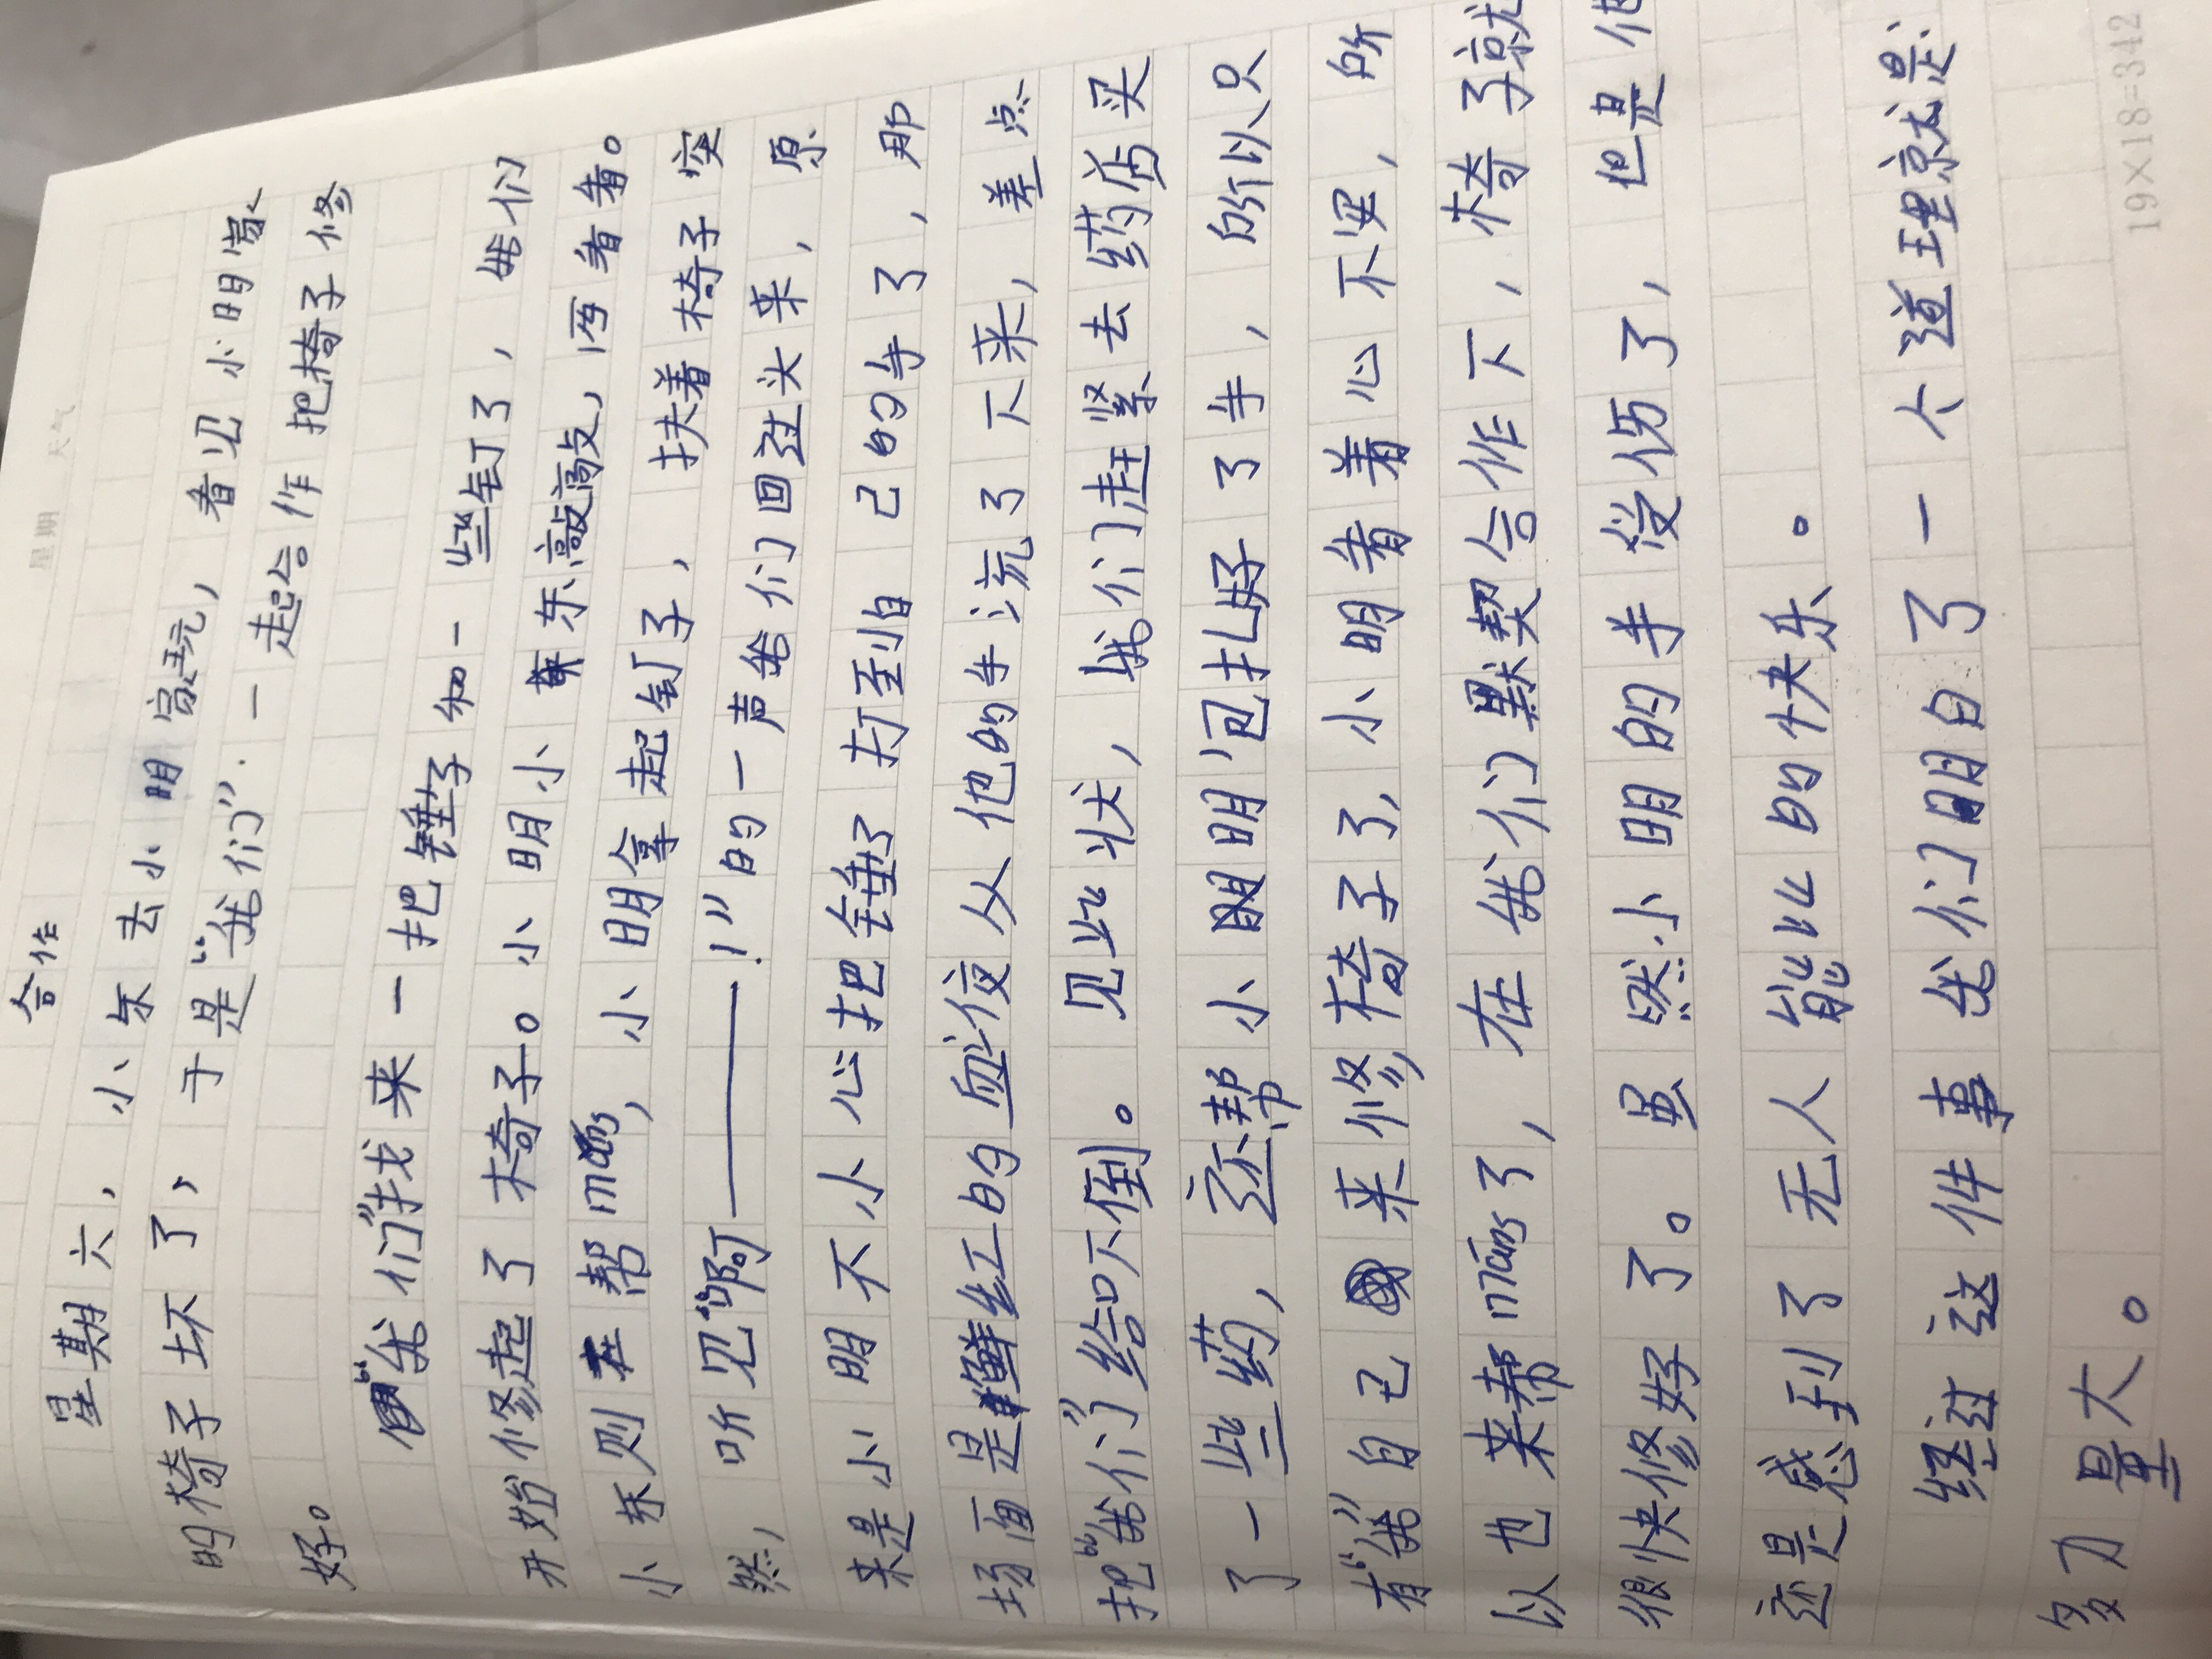 星期 天气
合作
星期六，小东去小明家玩，看见小明家
的椅子坏了，于是“我们”一起合作把椅子修
好。
“我们”找来一把锤子和一些钉了，我们
开始修起了椅子。小明小东敲敲，西看看。
小东则在帮māng，小明拿起钉子，扶着椅子突
然，听见“啊——！”的一声我们回过头来，原
来是小明不小心把锤了打到自己的手了，那
场面是鲜红的血液从他的手流了下来，差点
把“我们”给吓倒。见此状，我们赶紧去药店买
了一些药，还帮小明包扎好了手，所以只
有“我”自己来修椅子了，小明看着心不安，所
以也来帮māng了，在我们默契合作下，椅子就
很快修好了。虽然小明的手受伤了，但是他
还是感到了无人能比的快乐。
经过这件事我们明白了一个道理就是：
多力量大。
19×18=342